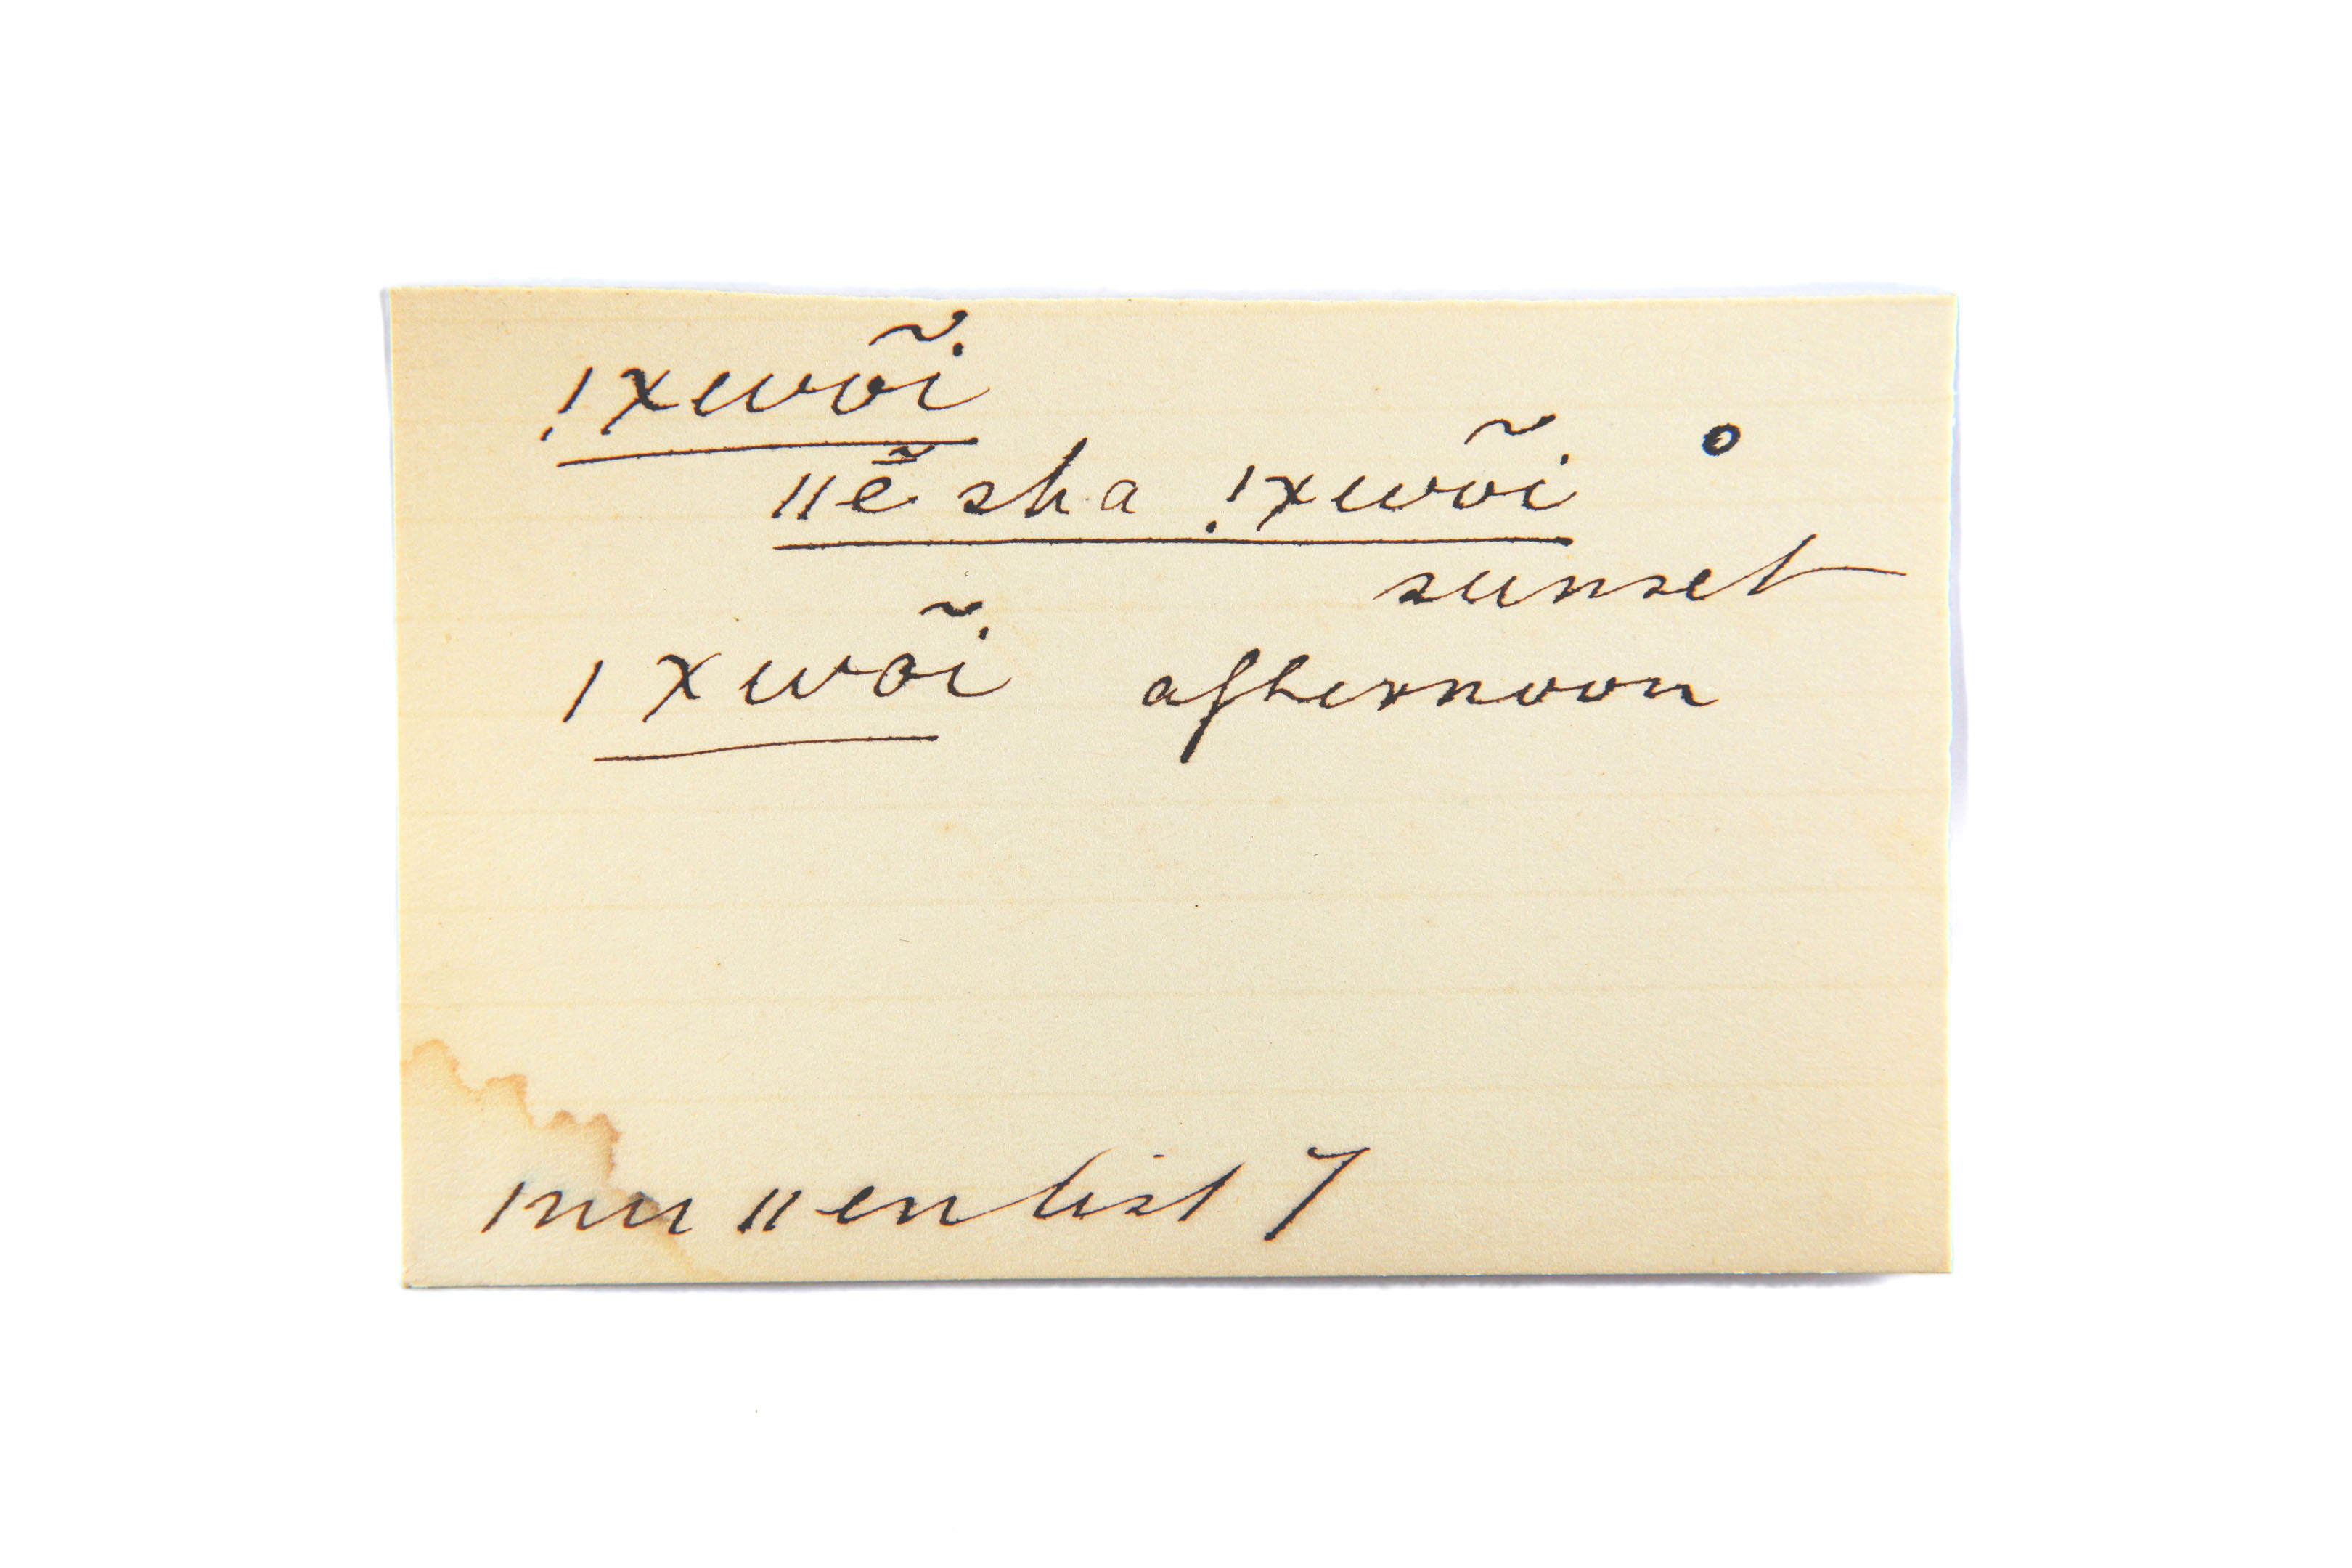 !xwõi
ǁẽ sha !xwõi o
sunset
ǀxwõi afternoon
ǀnu ǁen list 7